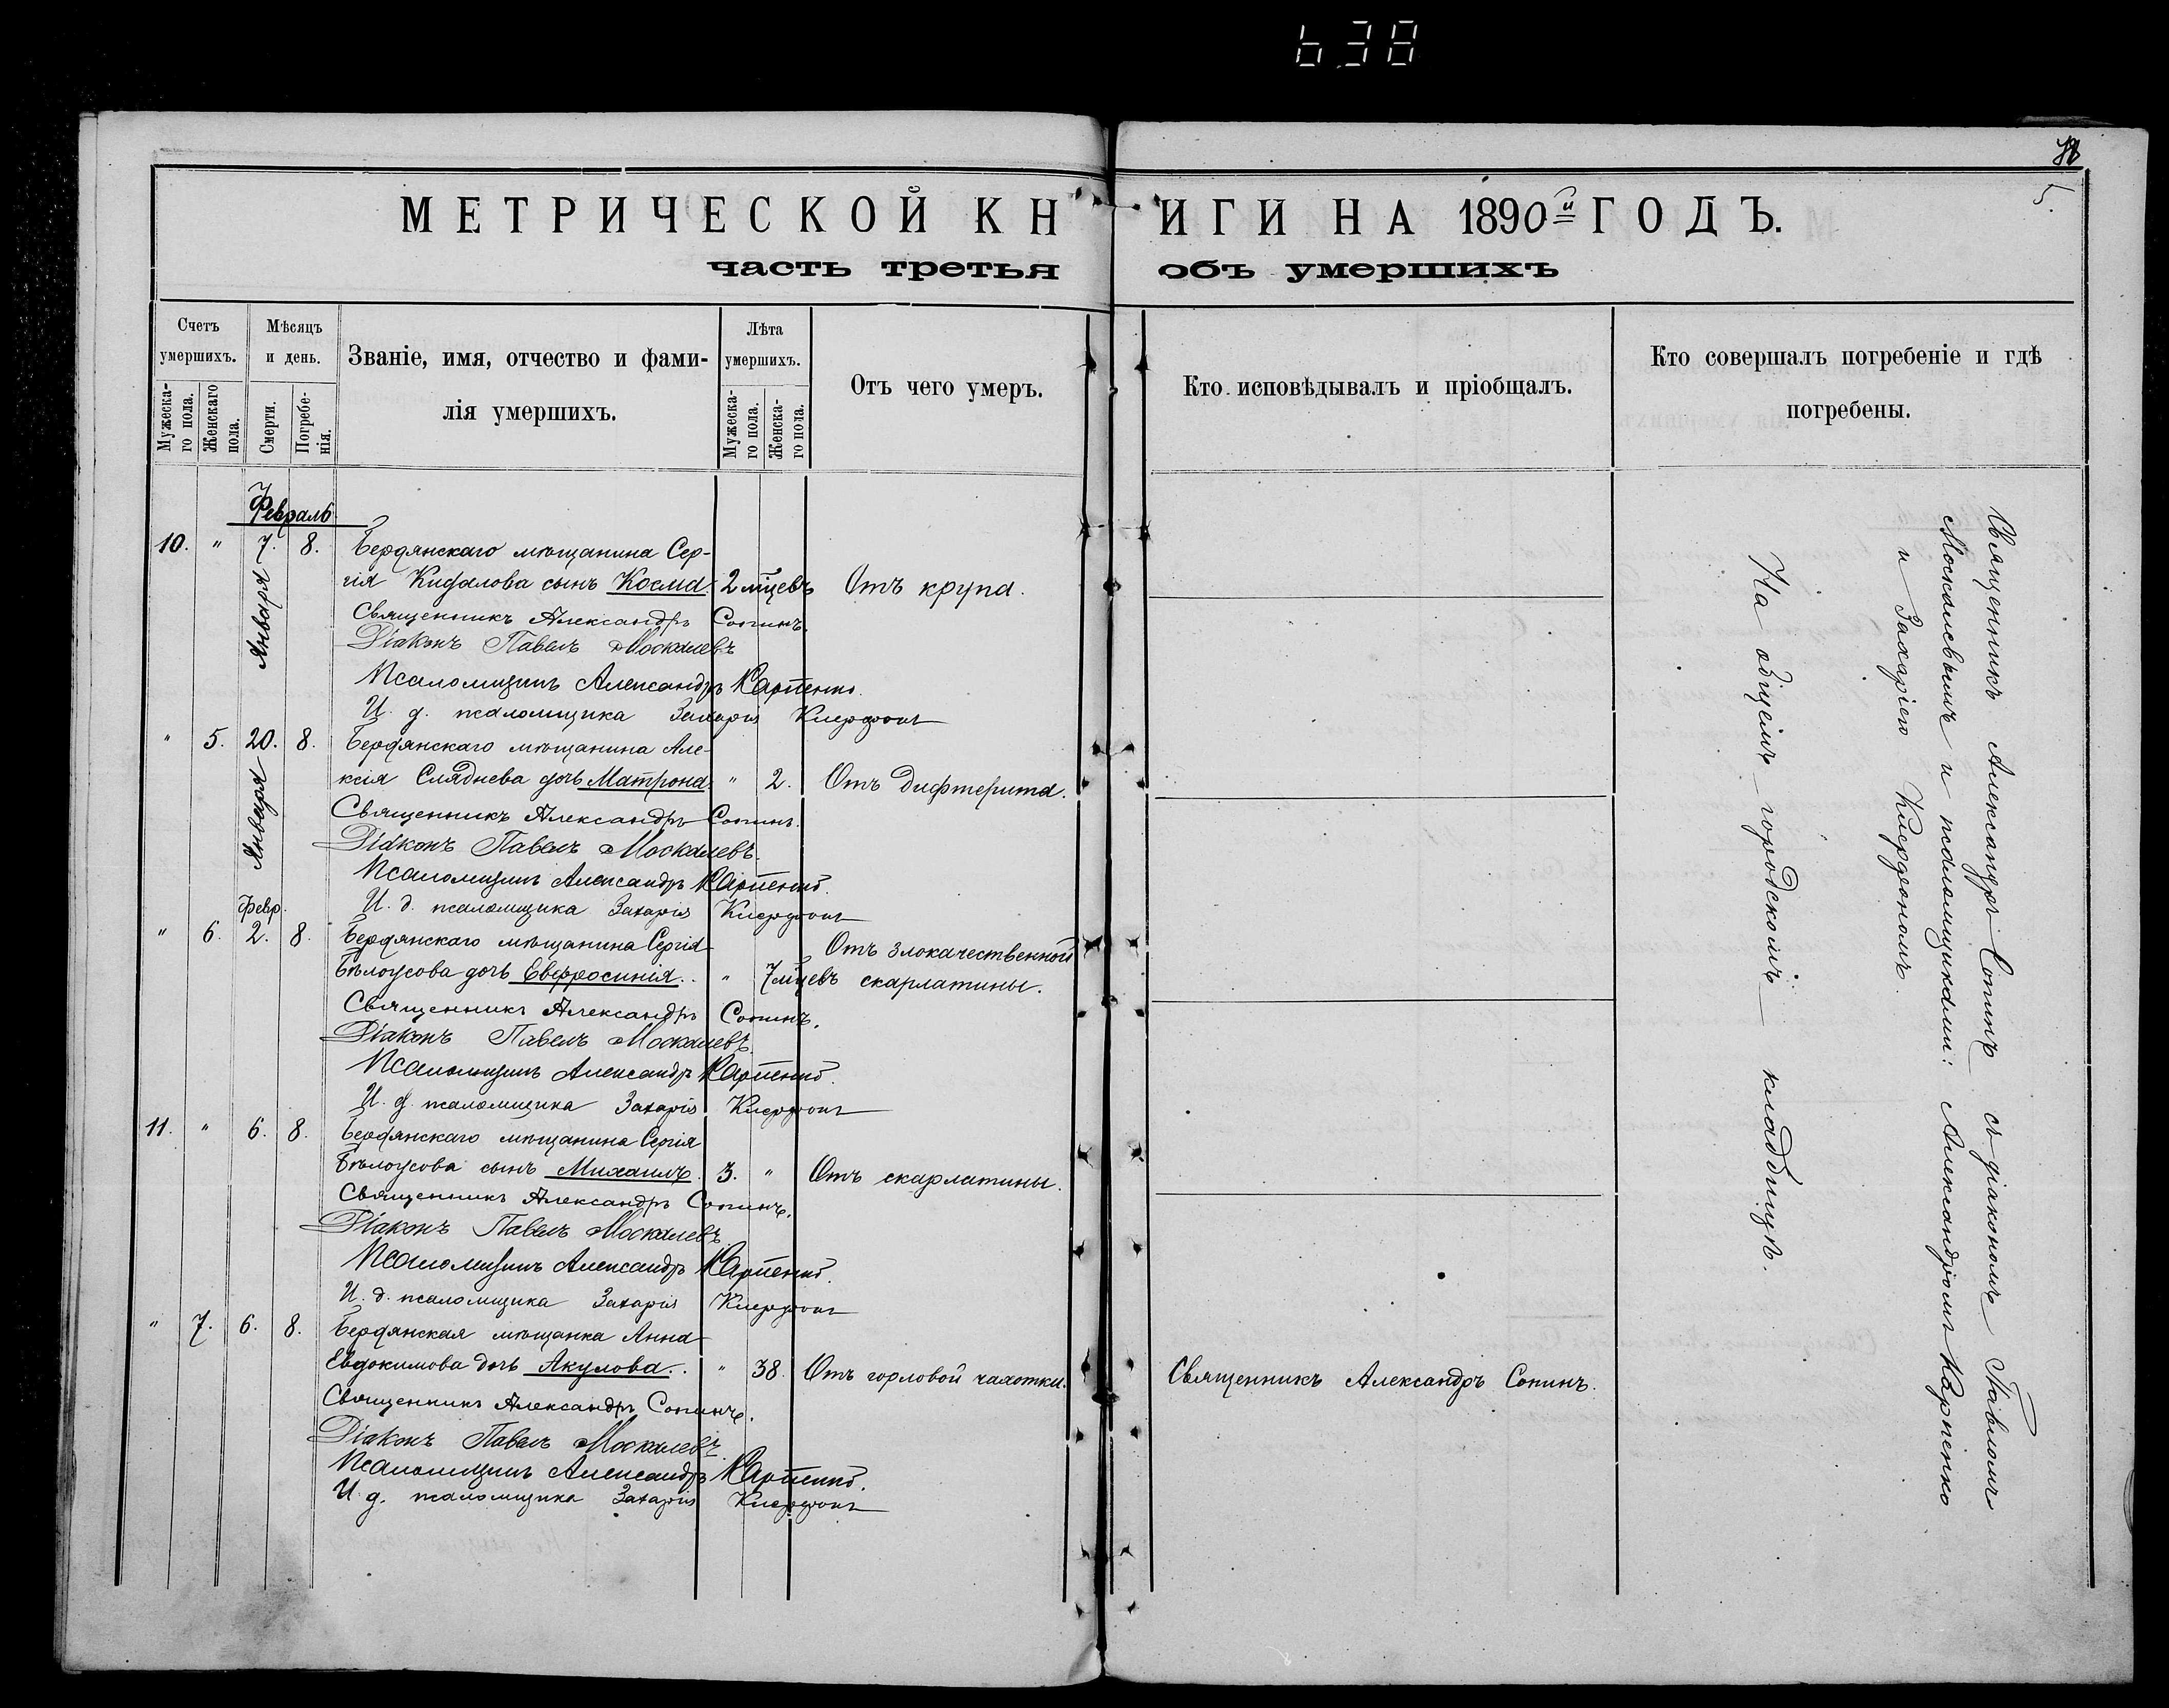 638
5.
МЕТРИЧЕСКОЙ КНИГИ НА 1890й ГОДЪ.
часть третья объ умершихъ
Счетъ умершихъ.
Мужеска-го пола.
Женскаго пола.
Мѣсяцъ и день.
Смерти.
Погребе-нія.
Званіе, имя, отчество и фами-
лія умершихъ.
Лѣта умершихъ.
Мужеска-го пола.
Женска-го пола.
Отъ чего умеръ.
Кто исповѣдывалъ и пріобщалъ.
Кто совершалъ погребеніе и гдѣ
погребены.
Февраль
10. " 7. 8. Бердянскаго мѣщанина Сер-
Января
гія Кидалова сынъ Косма. 2 мцевъ Отъ крупа.
Священникъ Александръ Сопинъ.
Діаконъ Павелъ Москалевъ
Псаломщикъ Александръ Карпенко.
И. д. псаломщика Захарія
" 5. 20. 8. Бердянскаго мѣщанина Але-
Января
ксія Сляднева дочь Матрона. " 2. Отъ дифтерита.
Священникъ Александръ Сопинъ.
Діаконъ Павелъ Москалевъ.
Псаломщикъ Александръ Карпенко.
И. д. псаломщика Захарія
Февр.
" 6. 2. 8. Бердянскаго мѣщанина Сергія Отъ злокачественной
Бѣлоусова дочь Евфросинія. " 7 мцевъ скарлатины.
Священникъ Александръ Сопинъ.
Діаконъ Павелъ Москалевъ.
Псаломщикъ Александръ Карпенко.
И. д. псаломщика Захарія
11. " 6. 8. Бердянскаго мѣщанина Сергія
Бѣлоусова сынъ Михаилъ. 3. " Отъ скарлатины.
Священникъ Александръ Сопинъ.
Діаконъ Павелъ Москалевъ.
Псаломщикъ Александръ Карпенко.
И. д. псаломщика Захарія
" 7. 6. 8. Бердянская мѣщанка Анна
Евдокимова дочь Акулова. " 38. Отъ горловой чахотки. Священникъ Александръ Сопинъ.
Священникъ Александръ Сопинъ.
Діаконъ Павелъ Москалевъ.
Псаломщикъ Александръ Карпенко.
И. д. псаломщика Захарія
Священникъ Александръ Сопинъ съ діакономъ Павломъ
Москалевымъ и псаломщиками: Александромъ Карпенко
и Захаріею
На общемъ городскомъ кладбищѣ.